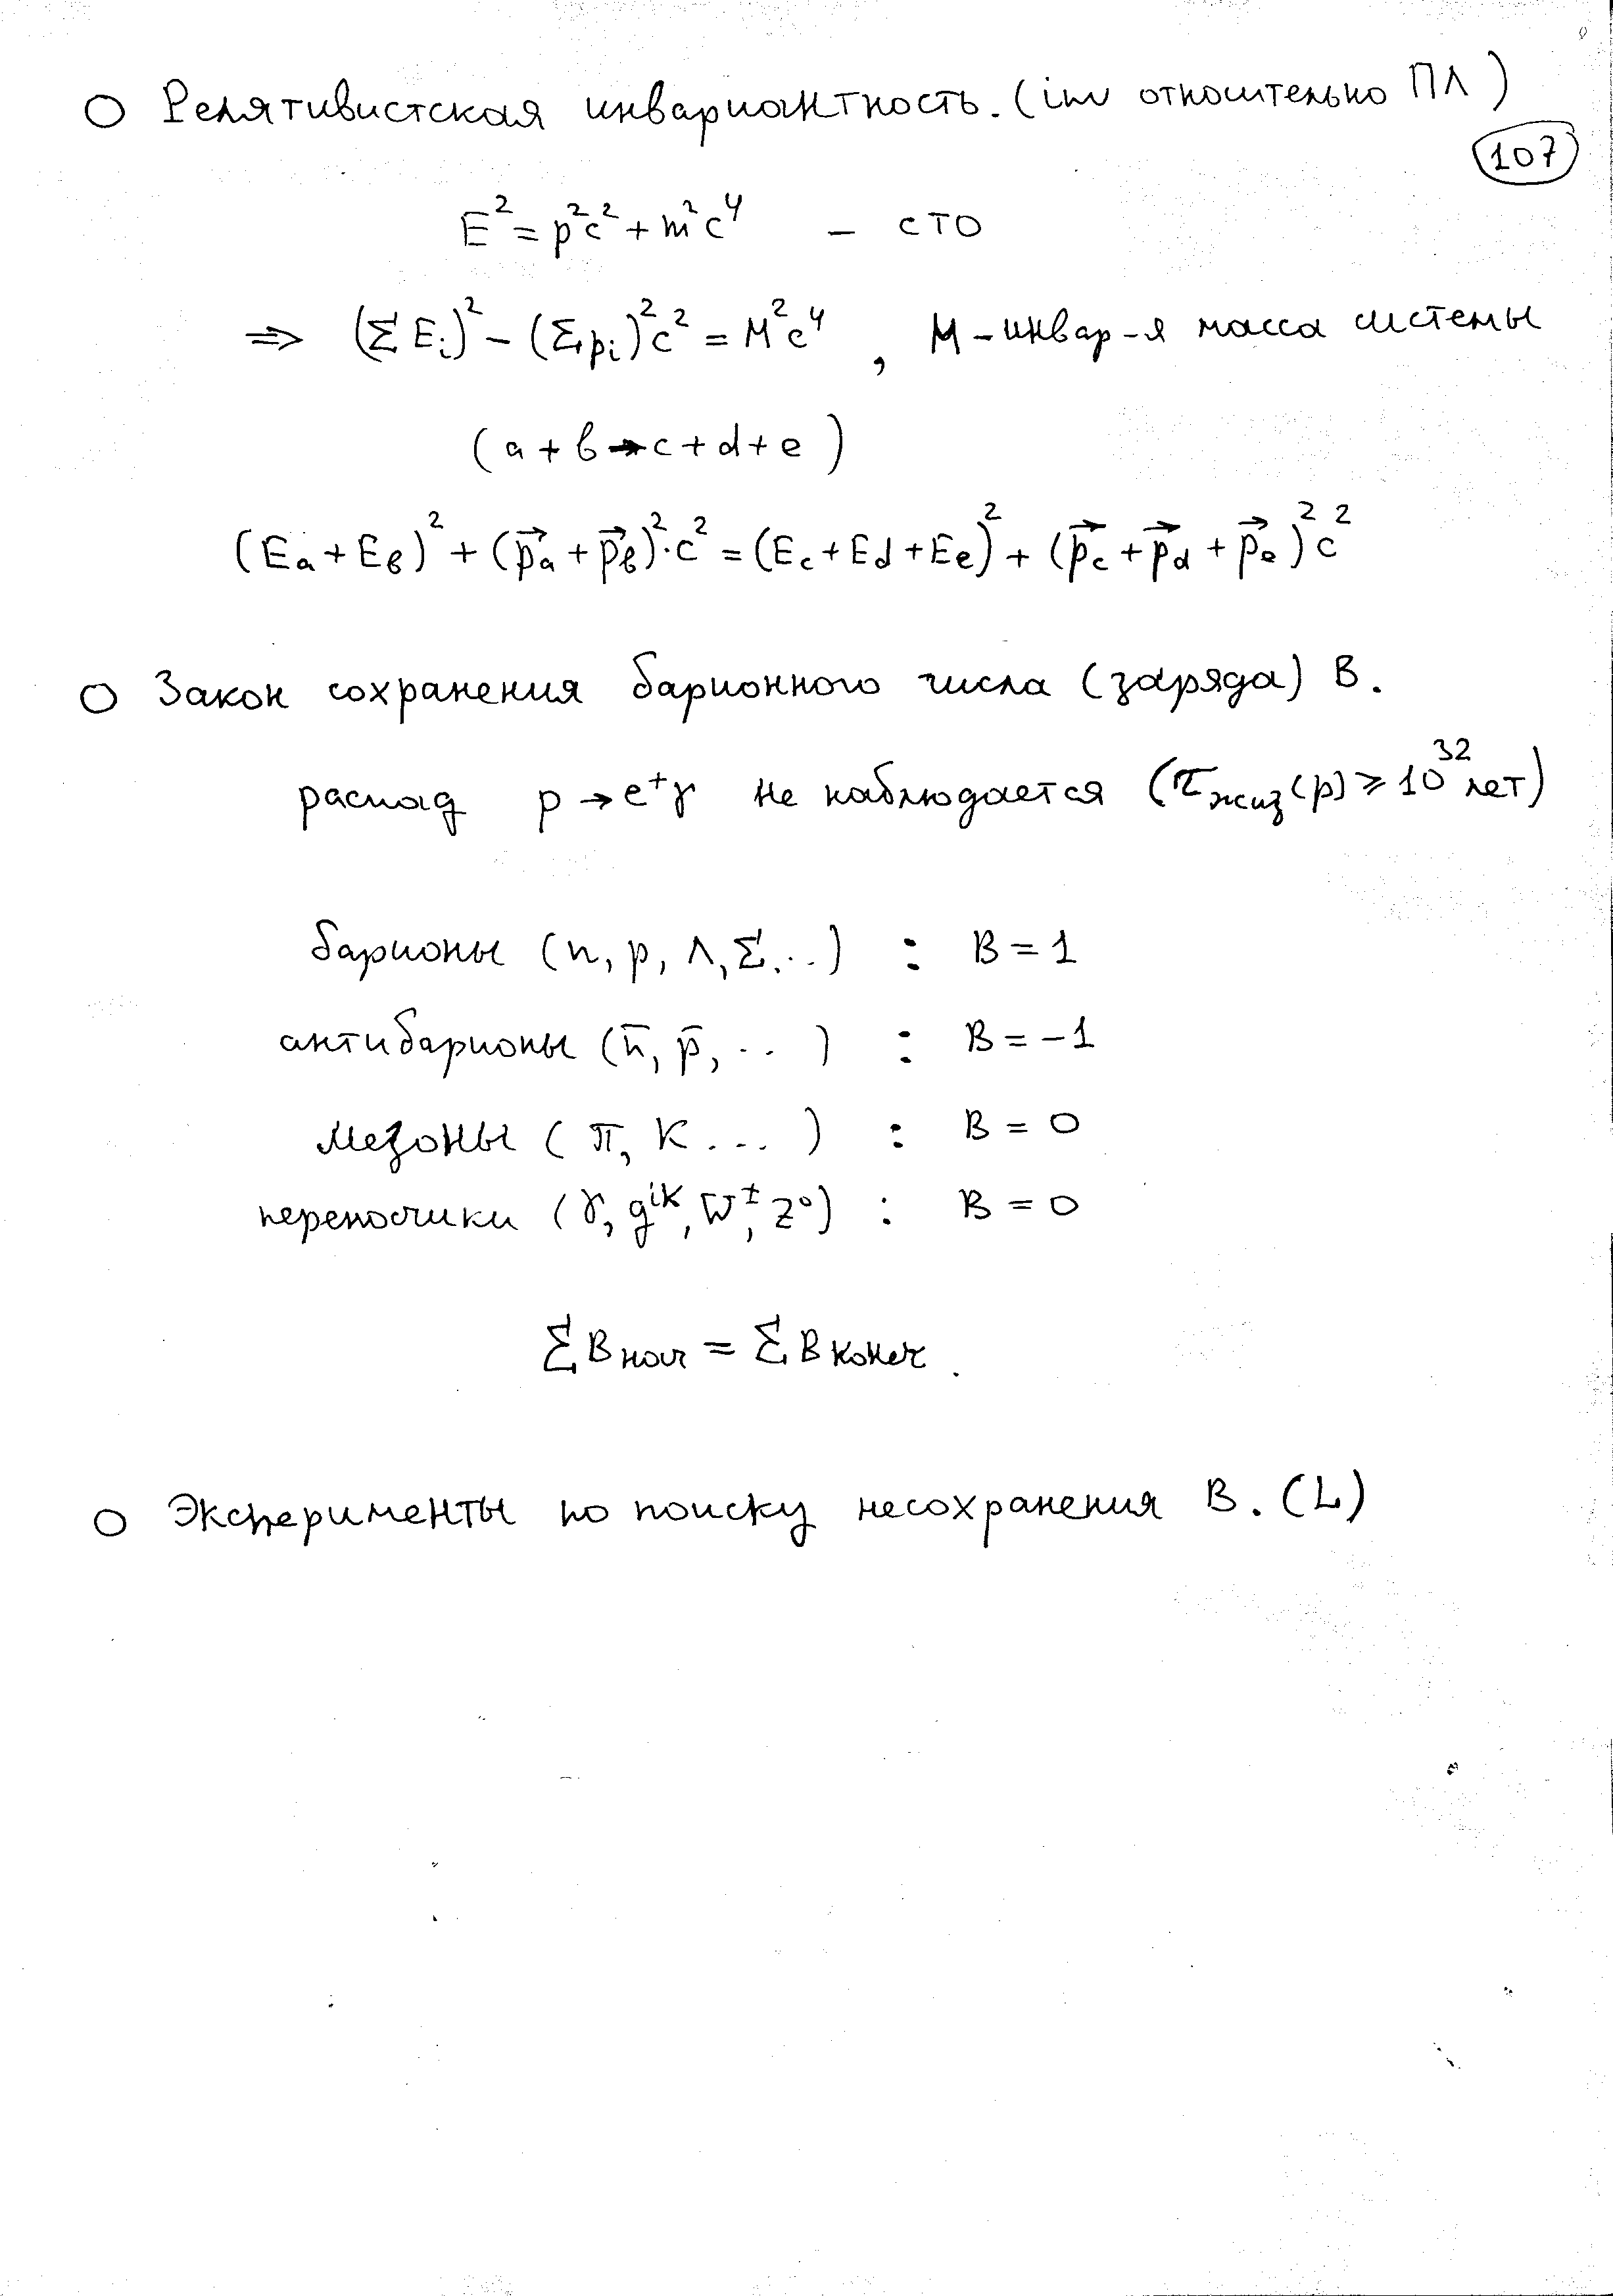 ○ Релятивистская инвариантность. (inv относительно ПЛ)
107
E² = p²c² + m²c⁴ – СТО
⇒ (Σ Eᵢ)² – (Σ pᵢ)²c² = M²c⁴, M – инвар-я масса системы
(a + b → c + d + e)
(Ea + Eb)² + (p⃗a + p⃗b)²·c² = (Ec + Ed + Ee)² + (p⃗c + p⃗d + p⃗e)²c²
○ Закон сохранения барионного числа (заряда) B.
распад p → e⁺γ не наблюдается (τжиз(p) ⩾ 10³² лет)
барионы (n, p, Λ, Σ...) : B = 1
антибарионы (n̄, p̄, ..) : B = –1
мезоны (π, K ...) : B = 0
переносчики (γ, gⁱᵏ, W±, Z⁰) : B = 0
Σ Bнач = Σ Bконеч.
○ Эксперименты по поиску несохранения B. (L)